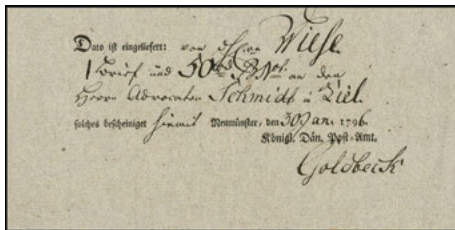 Dato ist eingeliefert: von Wiese
1 Brief und 50 an den
Herrn Advocaten Schmidt a Kiel.
solches bescheiniget hiemit Neumünster, den 30 Jan. 1796.
Königl. Dän. Post-Amt.
Goldbeck